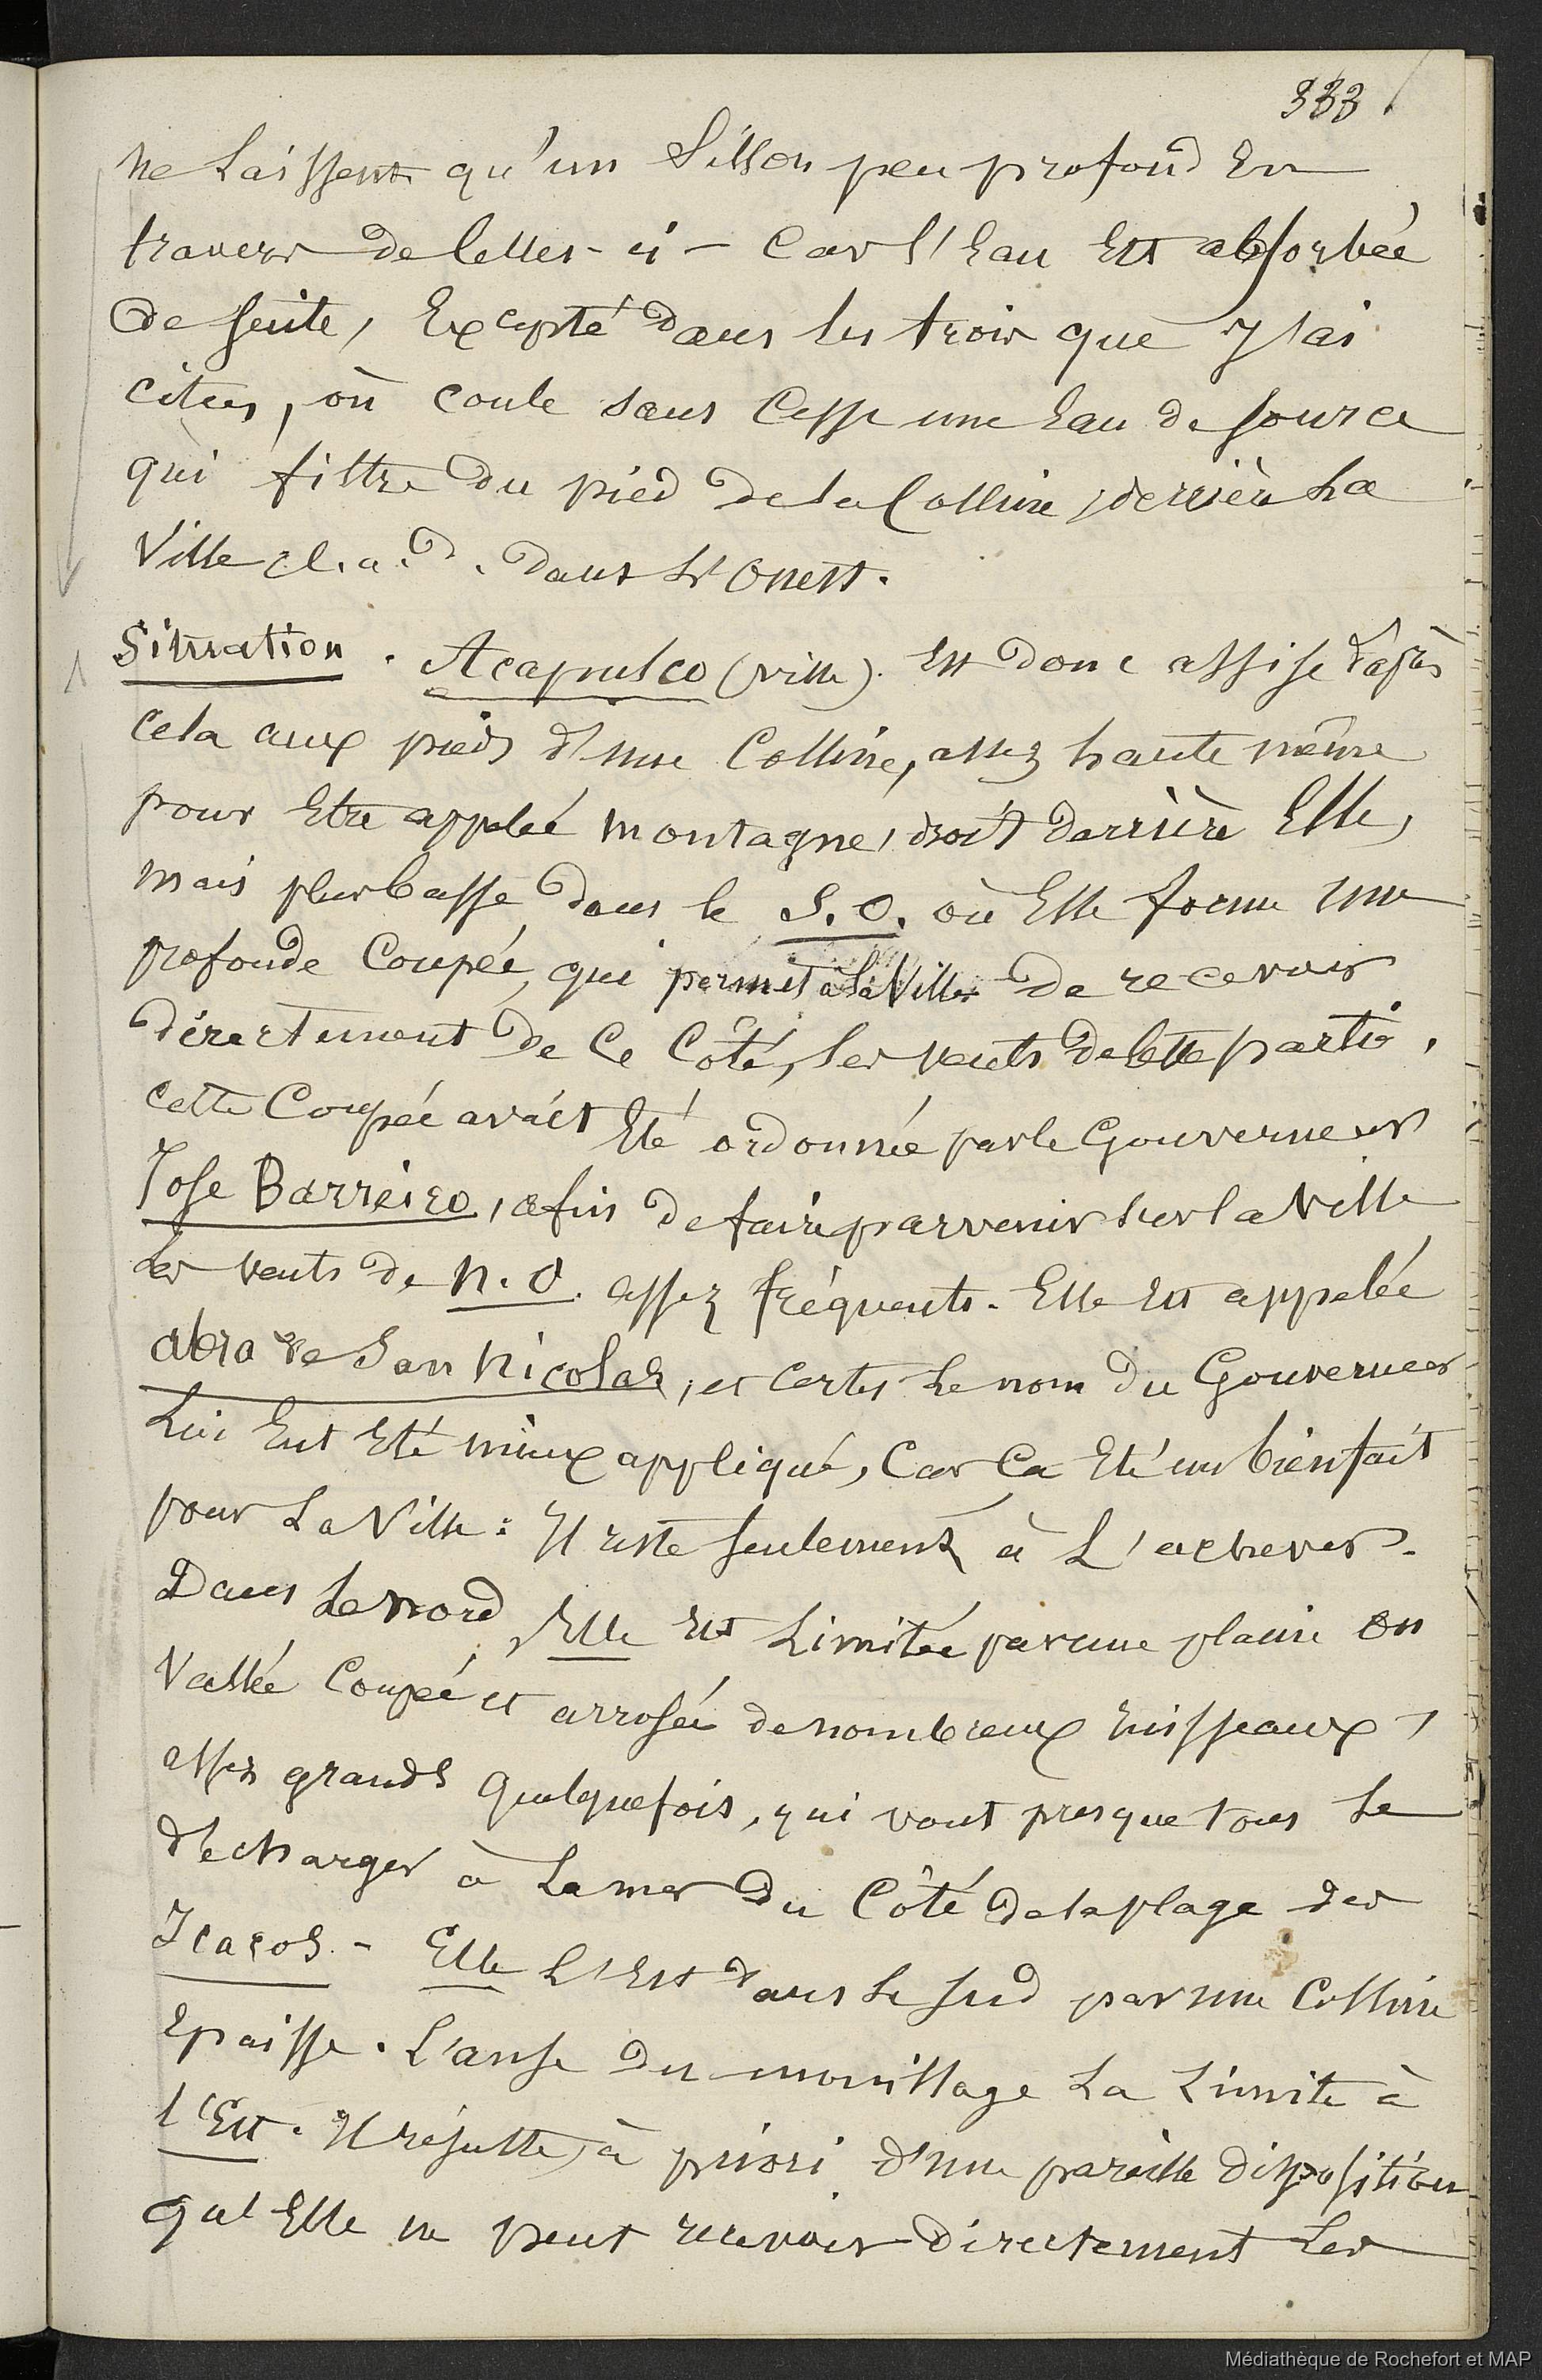 333
ne laissent qu'un sillon peu profond en
travers de celles-ci – car l'Eau Est absorbée
de suite, Excepté dans les trois que j'ai
citées, où coule sans cesse une Eau de source
qui filtre du pied de la Colline, derrière la
Ville c.l.a.d. dans l'Ouest.
Situation. Acapulco (ville). Est donc assise d'après
cela aux pieds d'une Colline, assez haute même
pour Etre appelée montagne, droit derrière Elle,
mais plus basse dans le S.O. où Elle forme une
profonde Coupée, qui permet à la Ville de recevoir
directement de ce Côté, les vents de cette partie.
Cette Coupée avait Eté ordonnée par le Gouverneur
Jose Barreiro, afin de faire parvenir sur la Ville
les vents de N.O. assez fréquents. Elle est appelée
abra de San Nicolas, et certes le nom du Gouverneur
lui Eut Eté mieux appliqué, Car ça Eté un bienfait
pour la Ville : Il reste seulement à L'achever.
Dans le nord, Elle Est Limitée par une plaine ou
Vallée Coupée et arrosée de nombreux ruisseaux,
assez grands quelquefois, qui vont presque tous se
décharger à la mer du Côté de la plage des
Icacos. – Elle L'Est dans le sud par une Colline
Epaisse. L'anse du mouillage la Limite à
l'Est. Il résulte, à priori d'une pareille disposition
qu'Elle ne peut recevoir directement les
Médiathèque de Rochefort et MAP